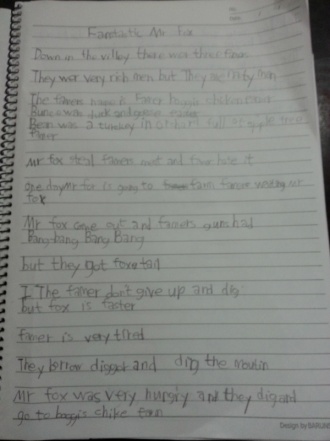 Fantastic Mr Fox
Down in the valley there wer three farms
They wer very rich men but They are nasty men
The famers name is farer boggis chicken
Bunce was duck and goose
Bean was a turkey in orchard full of apple tree
Mr fox steal famers meat and farmer hate it
one day Mr fox is going to farm famer waiting mr
fox
Mr fox come out and famers gun had
Bang bang Bang Bang
but they got fox tail
The famer don't give up and dig
but fox is faster
famer is very tired
They borrow digger and dig the
Mr fox was very hungry and they dig and
go to boggis farm
Design by